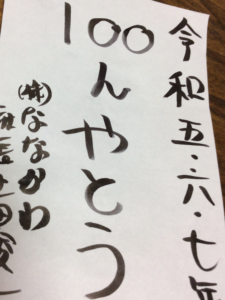 令和五・六・七年
100んやとう
㈱ななかわ